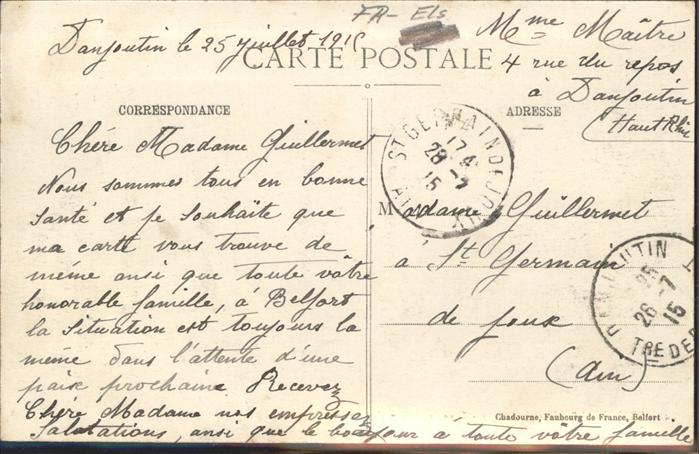 FR- Els
Danjoutin le 25 juillet 1915
Mme Maître
4 rue du repos
à Danjoutin
(Haut Rhin
CARTE POSTALE
CORRESPONDANCE
ADRESSE
Chére Madame Guillermet
Nous sommes tous en bonne
santé et je souhaite que
ma carte vous trouve de
même ansi que toute vôtre
honorable famille, à Belfort
la situation est toujours la
même dans l'attente d'une
paise prochaine Recevez
Chére Madame nos empressez
Salutations, ansi que le bonjour à toute vôtre famille
ST GERMAIN DE JOUX
AIN
28 -7
15
Madame Guillermet
à St. Germain
de joux
(Ain)
DANJOUTIN
26 -7
15
TRE DE
Chadourne, Faubourg de France, Belfort